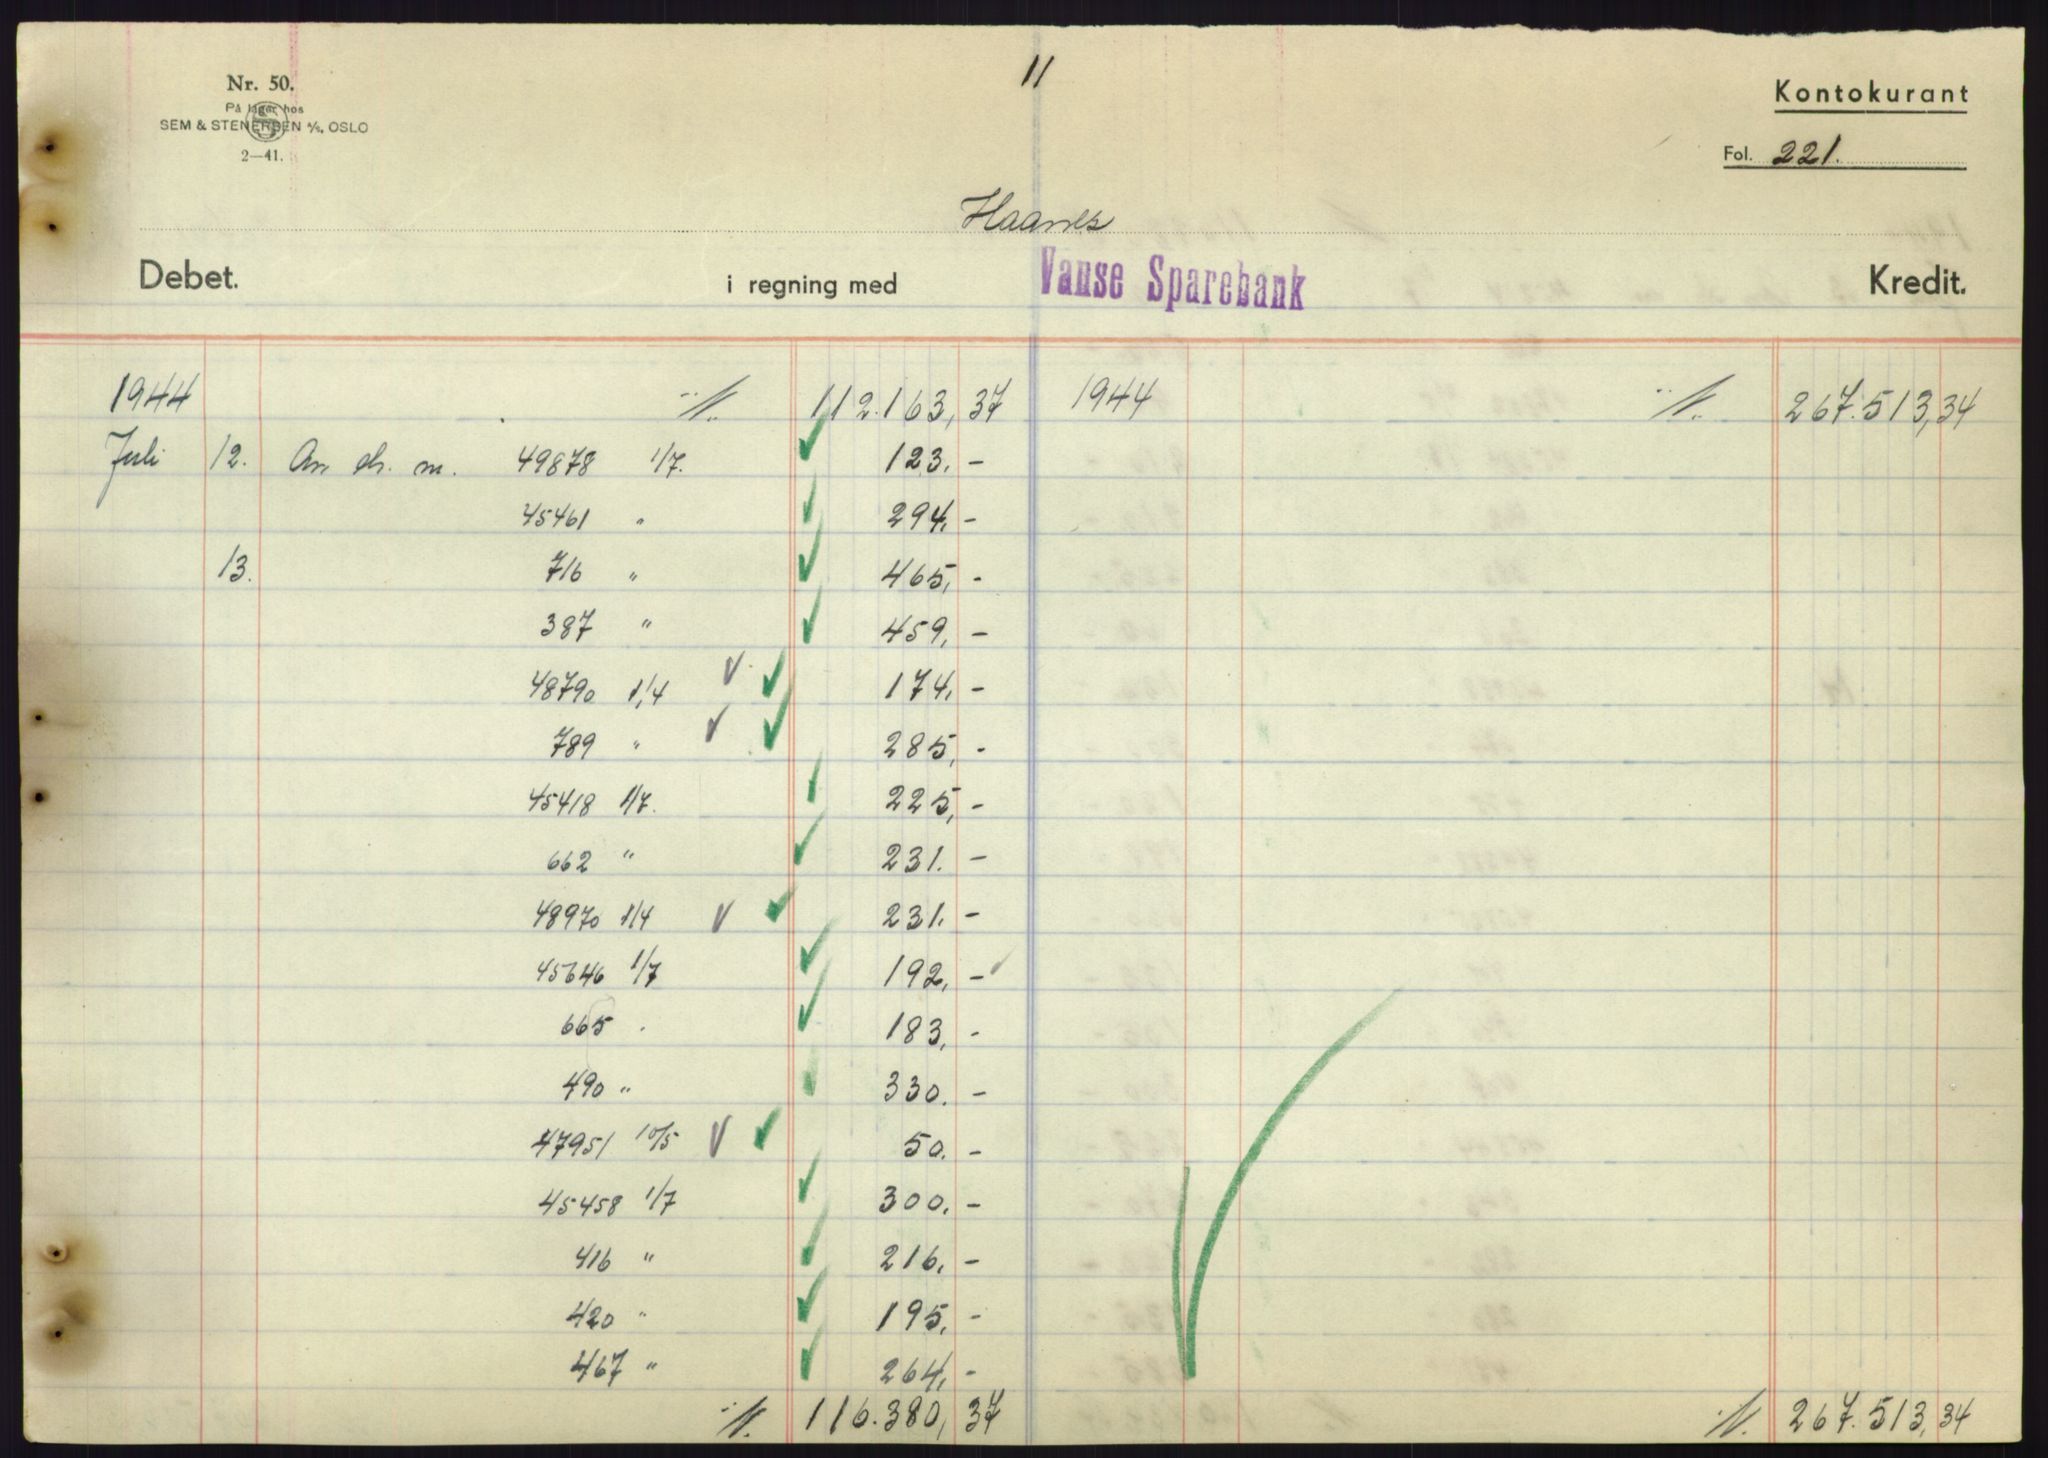 11
Nr. 50.
På lager hos
SEM & STENERSEN A/S, OSLO
2—41.
Kontokurant
Fol. 221.
Haanes
Debet. i regning med Vanse Sparebank Kredit.
1944 ·/· 112.163,37 1944 ·/· 267.513,34
Juli 12. An ch. m. 49878 1/7. 123.-
45461 " 294,-
13. 716 " 465,-
387 " 459,-
48790 1/4 174,-
789 " 285,-
45418 1/7. 225,-
662 " 231.-
48970 1/4 231.-
45646 1/7 192,-
665 " 183,-
490 " 330.-
47951 10/5 50.-
45458 1/7 300.-
416 " 216,-
420 " 195,-
467 " 264,-
·/· 116.380,37 ·/· 267.513,34